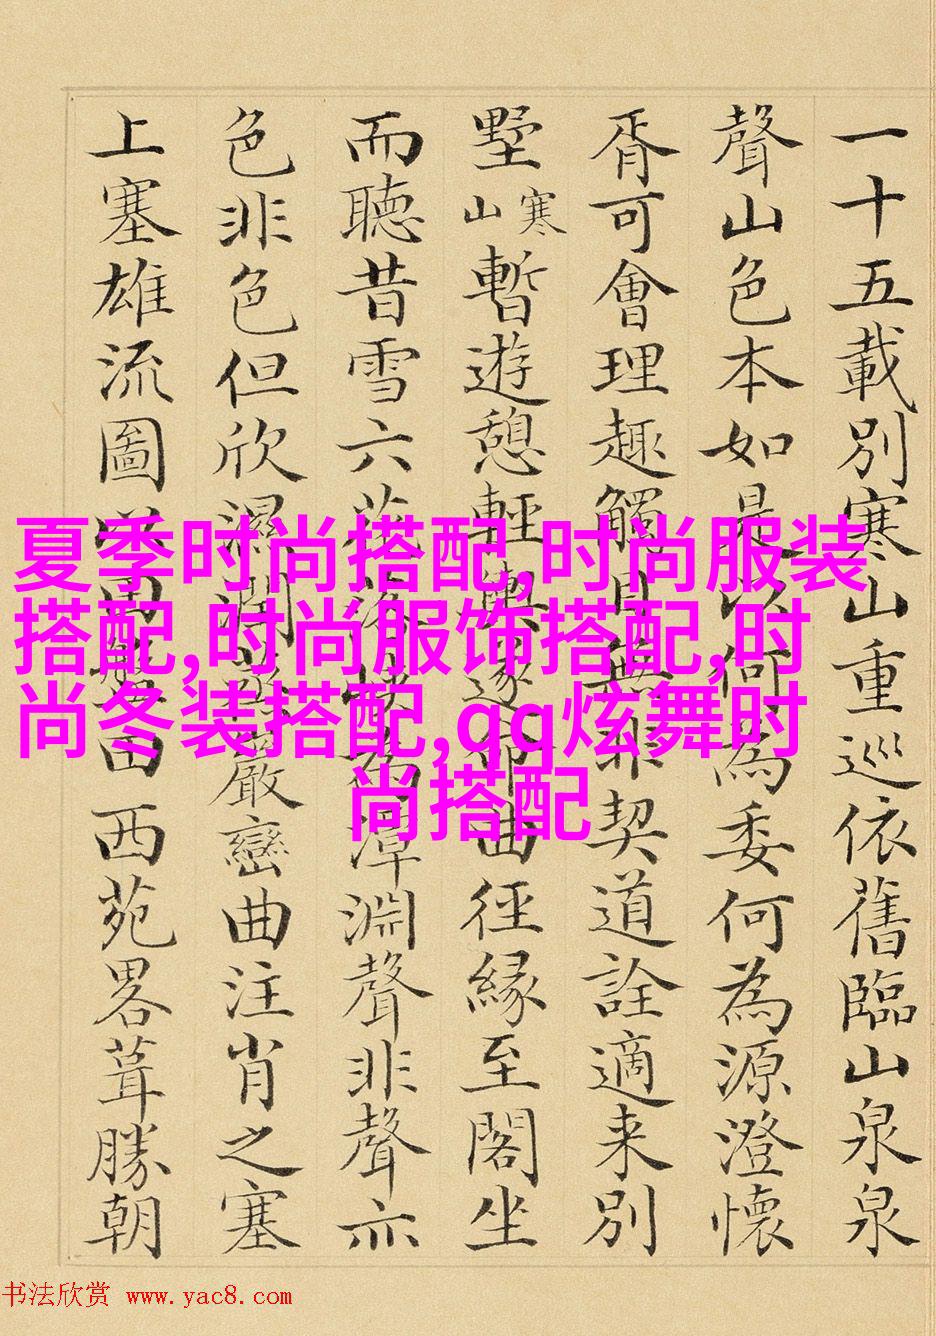 一十五載別寒山重巡依舊臨山泉泉
聲山色本如是以何為委何為源澄懷
胥可會理趣觸目無非契道詮適来別
墅寒山暫遊憩輕輿遂即曲徑縁至閣坐
而聽昔雪六花落潭淵聲非聲亦
色非色但欣濕潤巖巒曲注肖之塞
上塞雄流圖田西苑畧葺勝朝
夏季时尚搭配,时尚服装
搭配,时尚服饰搭配,时
尚冬装搭配,qq炫舞时
尚搭配
书法欣赏 www.yac8.com